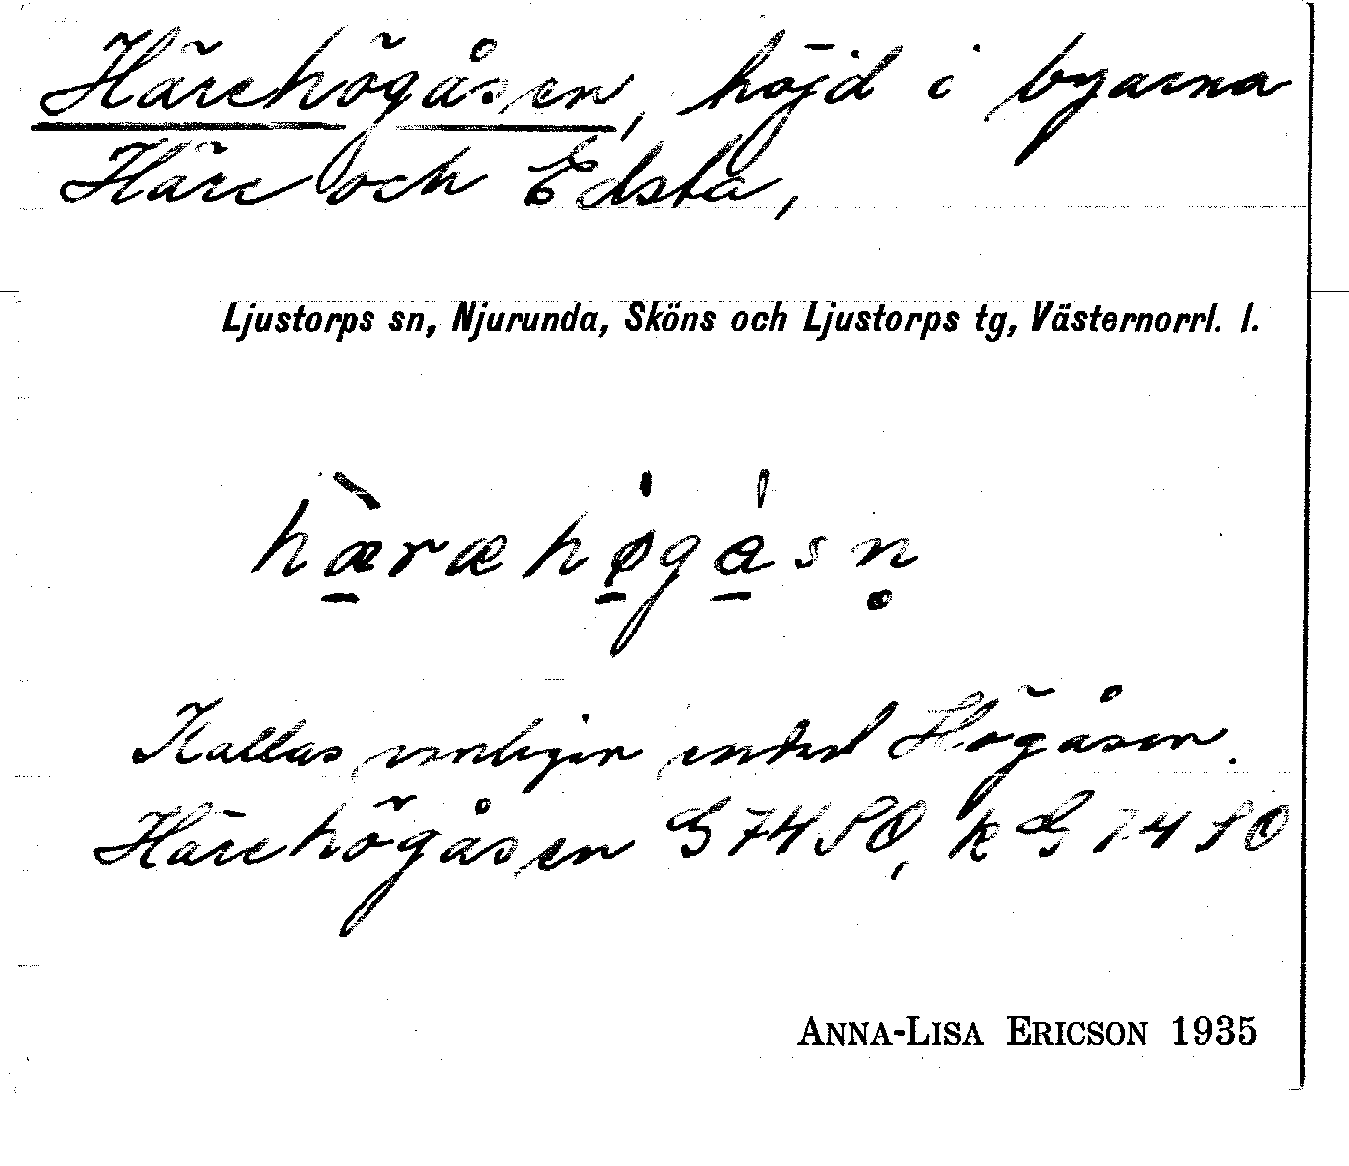 Härehögåsen, höjd i byarna
Häre och Edsta,
Ljustorps sn, Njurunda, Sköns och Ljustorps tg, Västernorrl. l.
hæ̀ræhø̍gás̍n̥
Kallas vanligen endast Högåsen.
Härehögåsen G 7480, k G 7480
ANNA-LISA ERICSON 1935